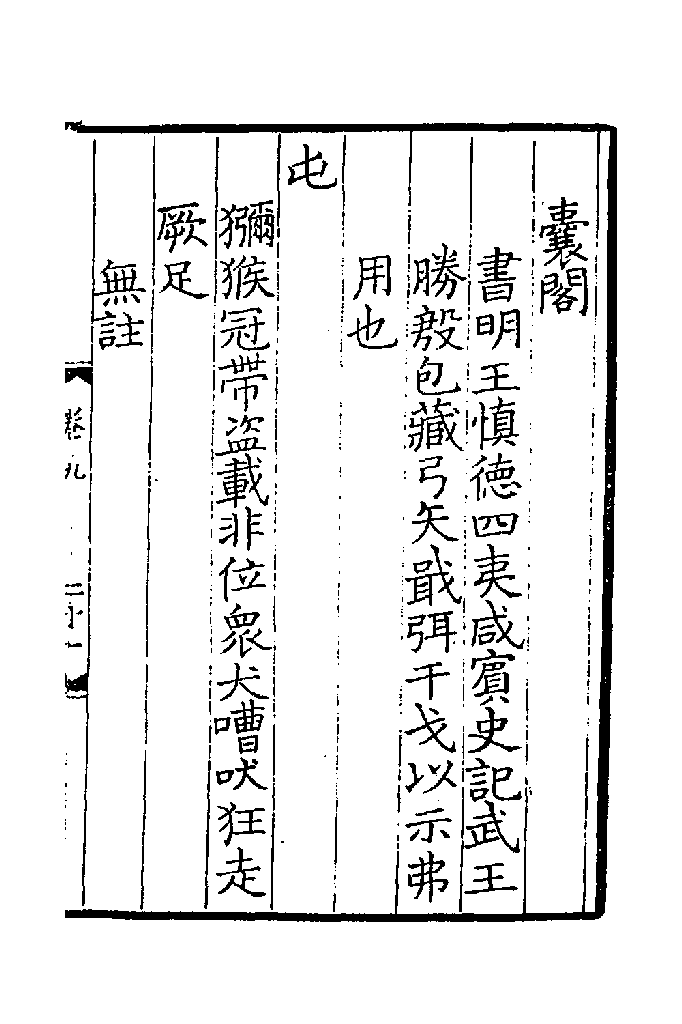 囊閣
書明王慎徳四夷咸賔史記武王
勝殷包藏弓矢戢弭干戈以示弗
用也
屯
獼猴冠帶盗載非位衆犬嘈吠狂走
厥足
無註
卷九
二十一